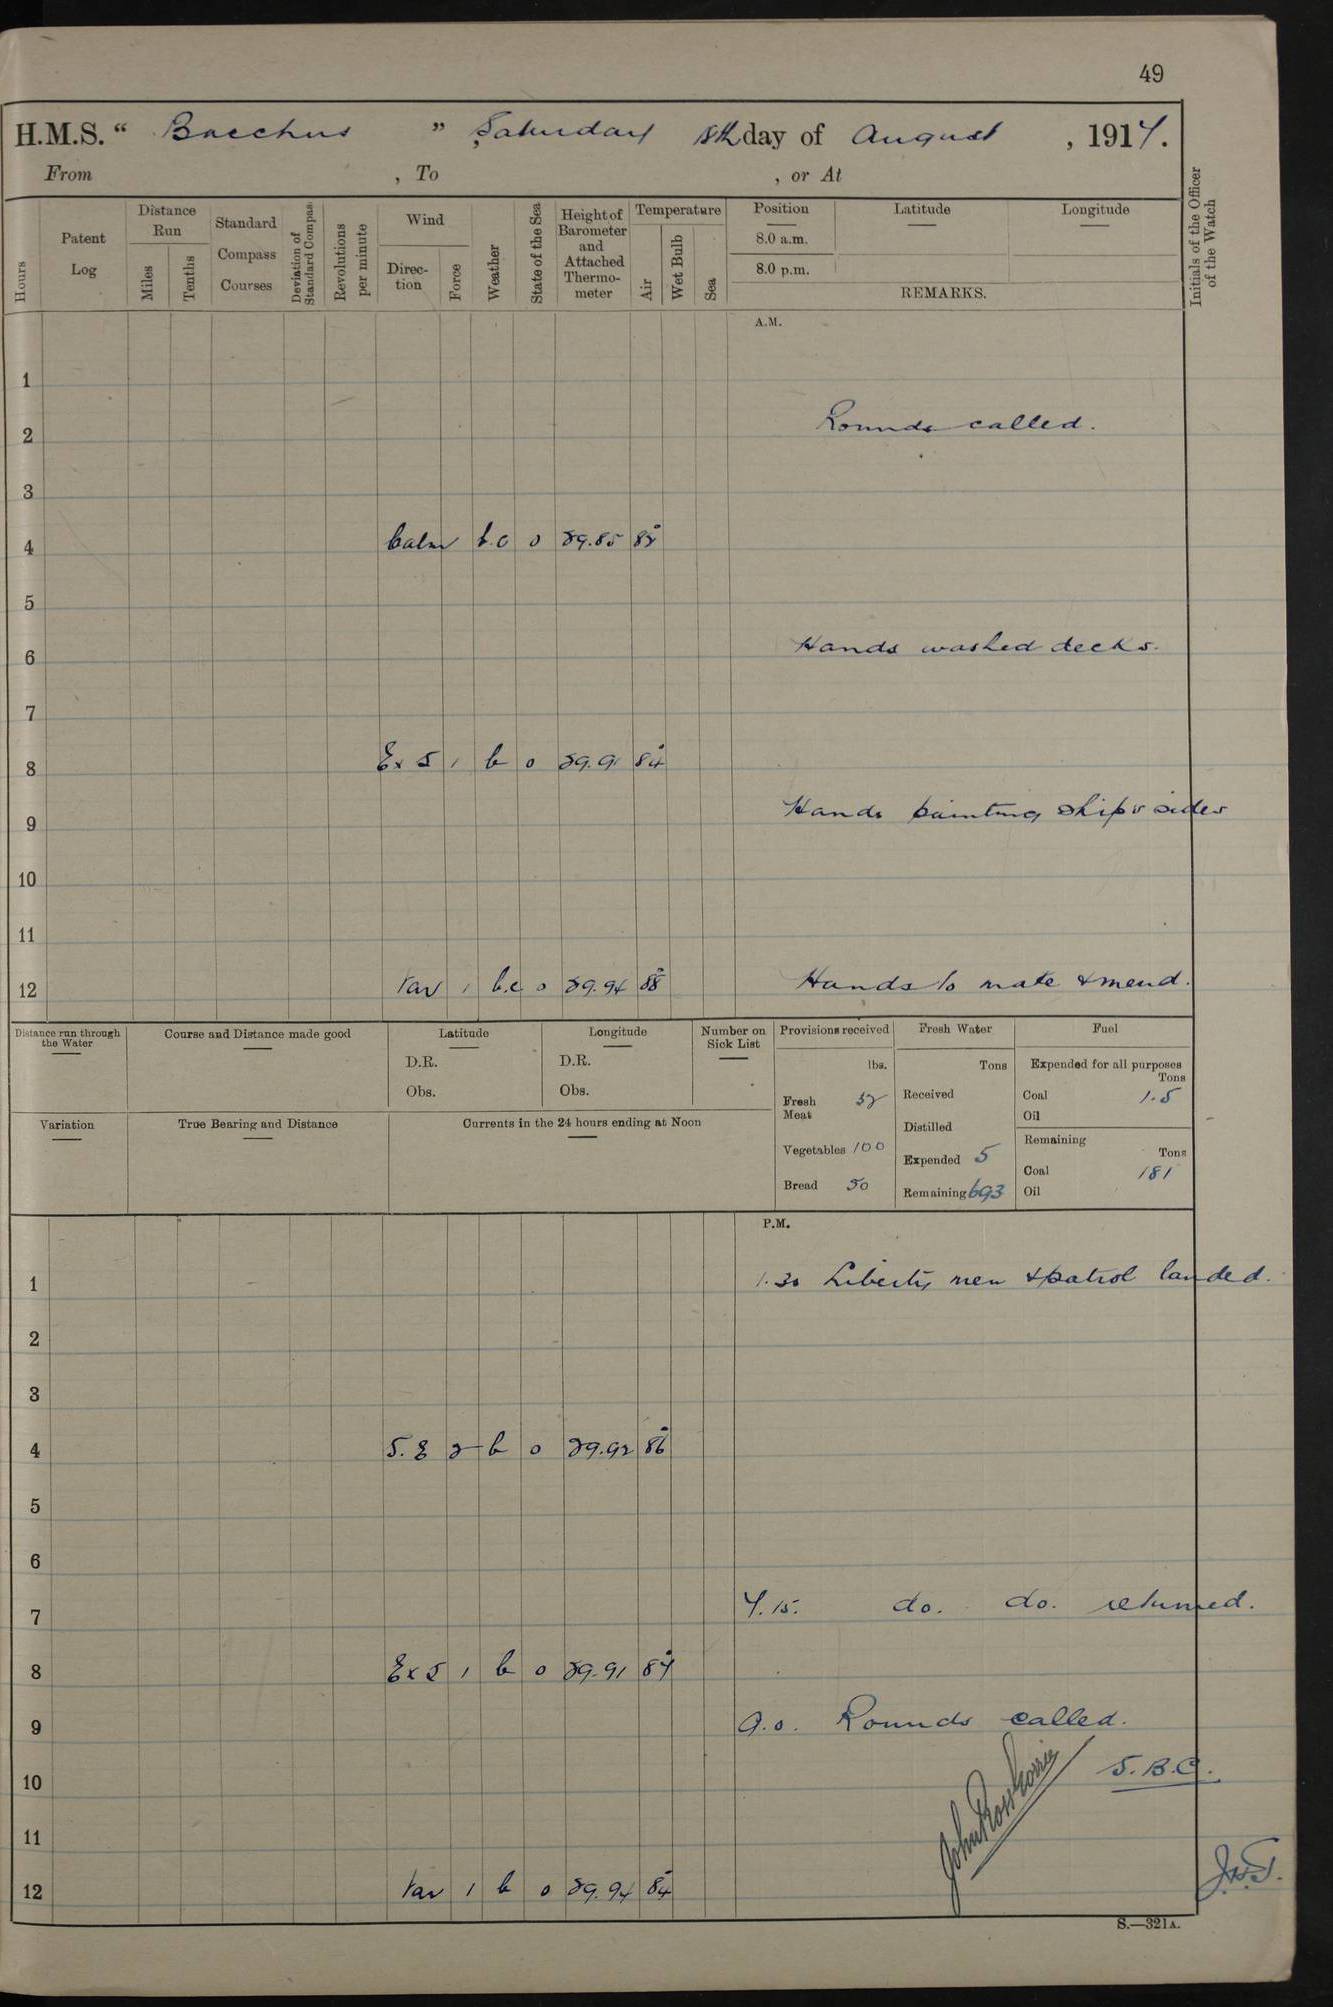 49
H.M.S. “ Bacchus ”, Saturday 18th day of August, 1917.
From , To , or At
Hours
Patent Log
Distance Run
Miles
Tenths
Standard Compass Courses
Deviation of Standard Compass
Revolutions per minute
Wind
Direction
Force
Weather
State of the Sea
Height of Barometer and Attached Thermometer
Temperature
Air
Wet Bulb
Sea
Position
8.0 a.m.
8.0 p.m.
Latitude
Longitude
REMARKS.
Initials of the Officer of the Watch
A.M.
1
2 Rounds called.
3
4 Calm b.c 0 29.85 82°
5
6 Hands washed decks.
7
8 E x S 1 b 0 29.91 84°
9 Hands painting ship's sides
10
11
12 Var 1 b.c 0 29.94 88° Hands to make & mend.
Distance run through the Water
Course and Distance made good
Latitude
D.R.
Obs.
Longitude
D.R.
Obs.
Number on Sick List
Provisions received
lbs.
Fresh Meat 52
Vegetables 100
Bread 50
Fresh Water
Tons
Received
Distilled
Expended 5
Remaining 693
Fuel
Expended for all purposes
Tons
Coal 1.5
Oil
Remaining
Tons
Coal 181
Oil
Variation
True Bearing and Distance
Currents in the 24 hours ending at Noon
P.M.
1 1.30 Liberty men & patrol landed.
2
3
4 S.E 2 b 0 29.92 86°
5
6
7 7.15. do. do. returned.
8 E x S 1 b 0 29.91
9 9.0. Rounds called.
10 S.B.C.
11
12 Var 1 b 0 29.94 84°
S.—321A.